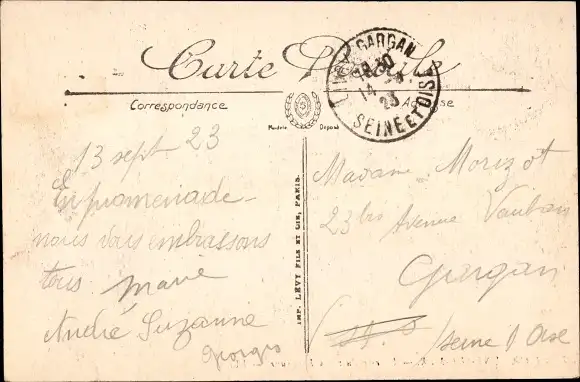 Carte Postale
Correspondance
Adresse
Modèle Déposé
LIVRY GARGAN
14 - 9
23
SEINE ET OISE
IMP. LÉVY FILS ET CIE, PARIS.
13 sept 23
En promenade
nous vous embrassons
tous Marie
André Suzanne
Georges
Madame Morizot
23 bis Avenue Vauban
Gargan
Seine & Oise